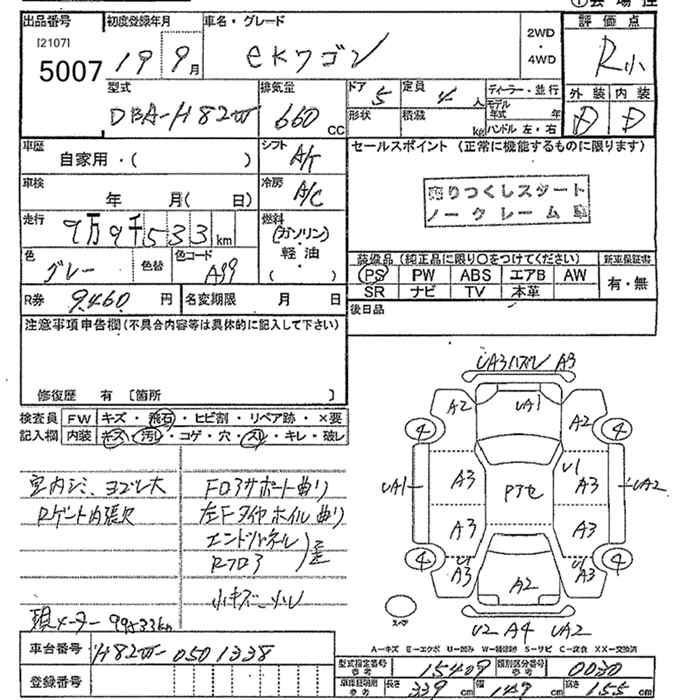 出品番号 初度登録年月 車名・グレード 2WD・4WD 評価点
[2107]
5007 19 9月 eKワゴン R小
型式 排気量 ドア 定員 ディーラー・並行 外装 内装
DBA-H82W 660 CC 5 4人 モデル年式 年 D D
形状 積載 kg ハンドル 左・右
車歴 自家用・( ) シフト A/T セールスポイント (正常に機能するものに限ります)
車検 年 月( 日) 冷房 A/C
売りつくしスタート
ノークレーム
走行 9万9千533km 燃料 (ガソリン)・軽油・( )
色 グレー 色替 色コード A99
装備品 (純正品に限り〇をつけてください) 新車保証書
PS PW ABS エアB AW 有・無
SR ナビ TV 本革
R券 9,460円 名変期限 月 日
後日品
注意事項申告欄(不具合内容等は具体的に記入して下さい)
修復歴 有 [箇所 ]
検査員 FW キズ・飛石・ヒビ割・リペア跡・×要
記入欄 内装 キズ・汚レ・コゲ・穴・スレ・キレ・破レ
室内シミ、ヨゴレ大 Fロアサポート曲り
Rゲート内張欠 左Fタイヤホイル曲り
エンドパネル
Rフロア 歪
小キズ
現メーター 99533km
UA3ハズレ A3
A2 UA1 A2
4 4
UA1 A3 U1 A3 UA2
A3 A3
4 4
U1 A3 A2 U1 A3
スペア
U2 A4 UA2
A=キズ E=エクボ U=凹み W=補修跡 S=サビ C=腐食 XX=交換済
車台番号 H82W-0501338
登録番号
型式指定番号 参考 15409 類別区分番号 参考 0030
長さ 339cm 幅 147cm 高さ 155cm